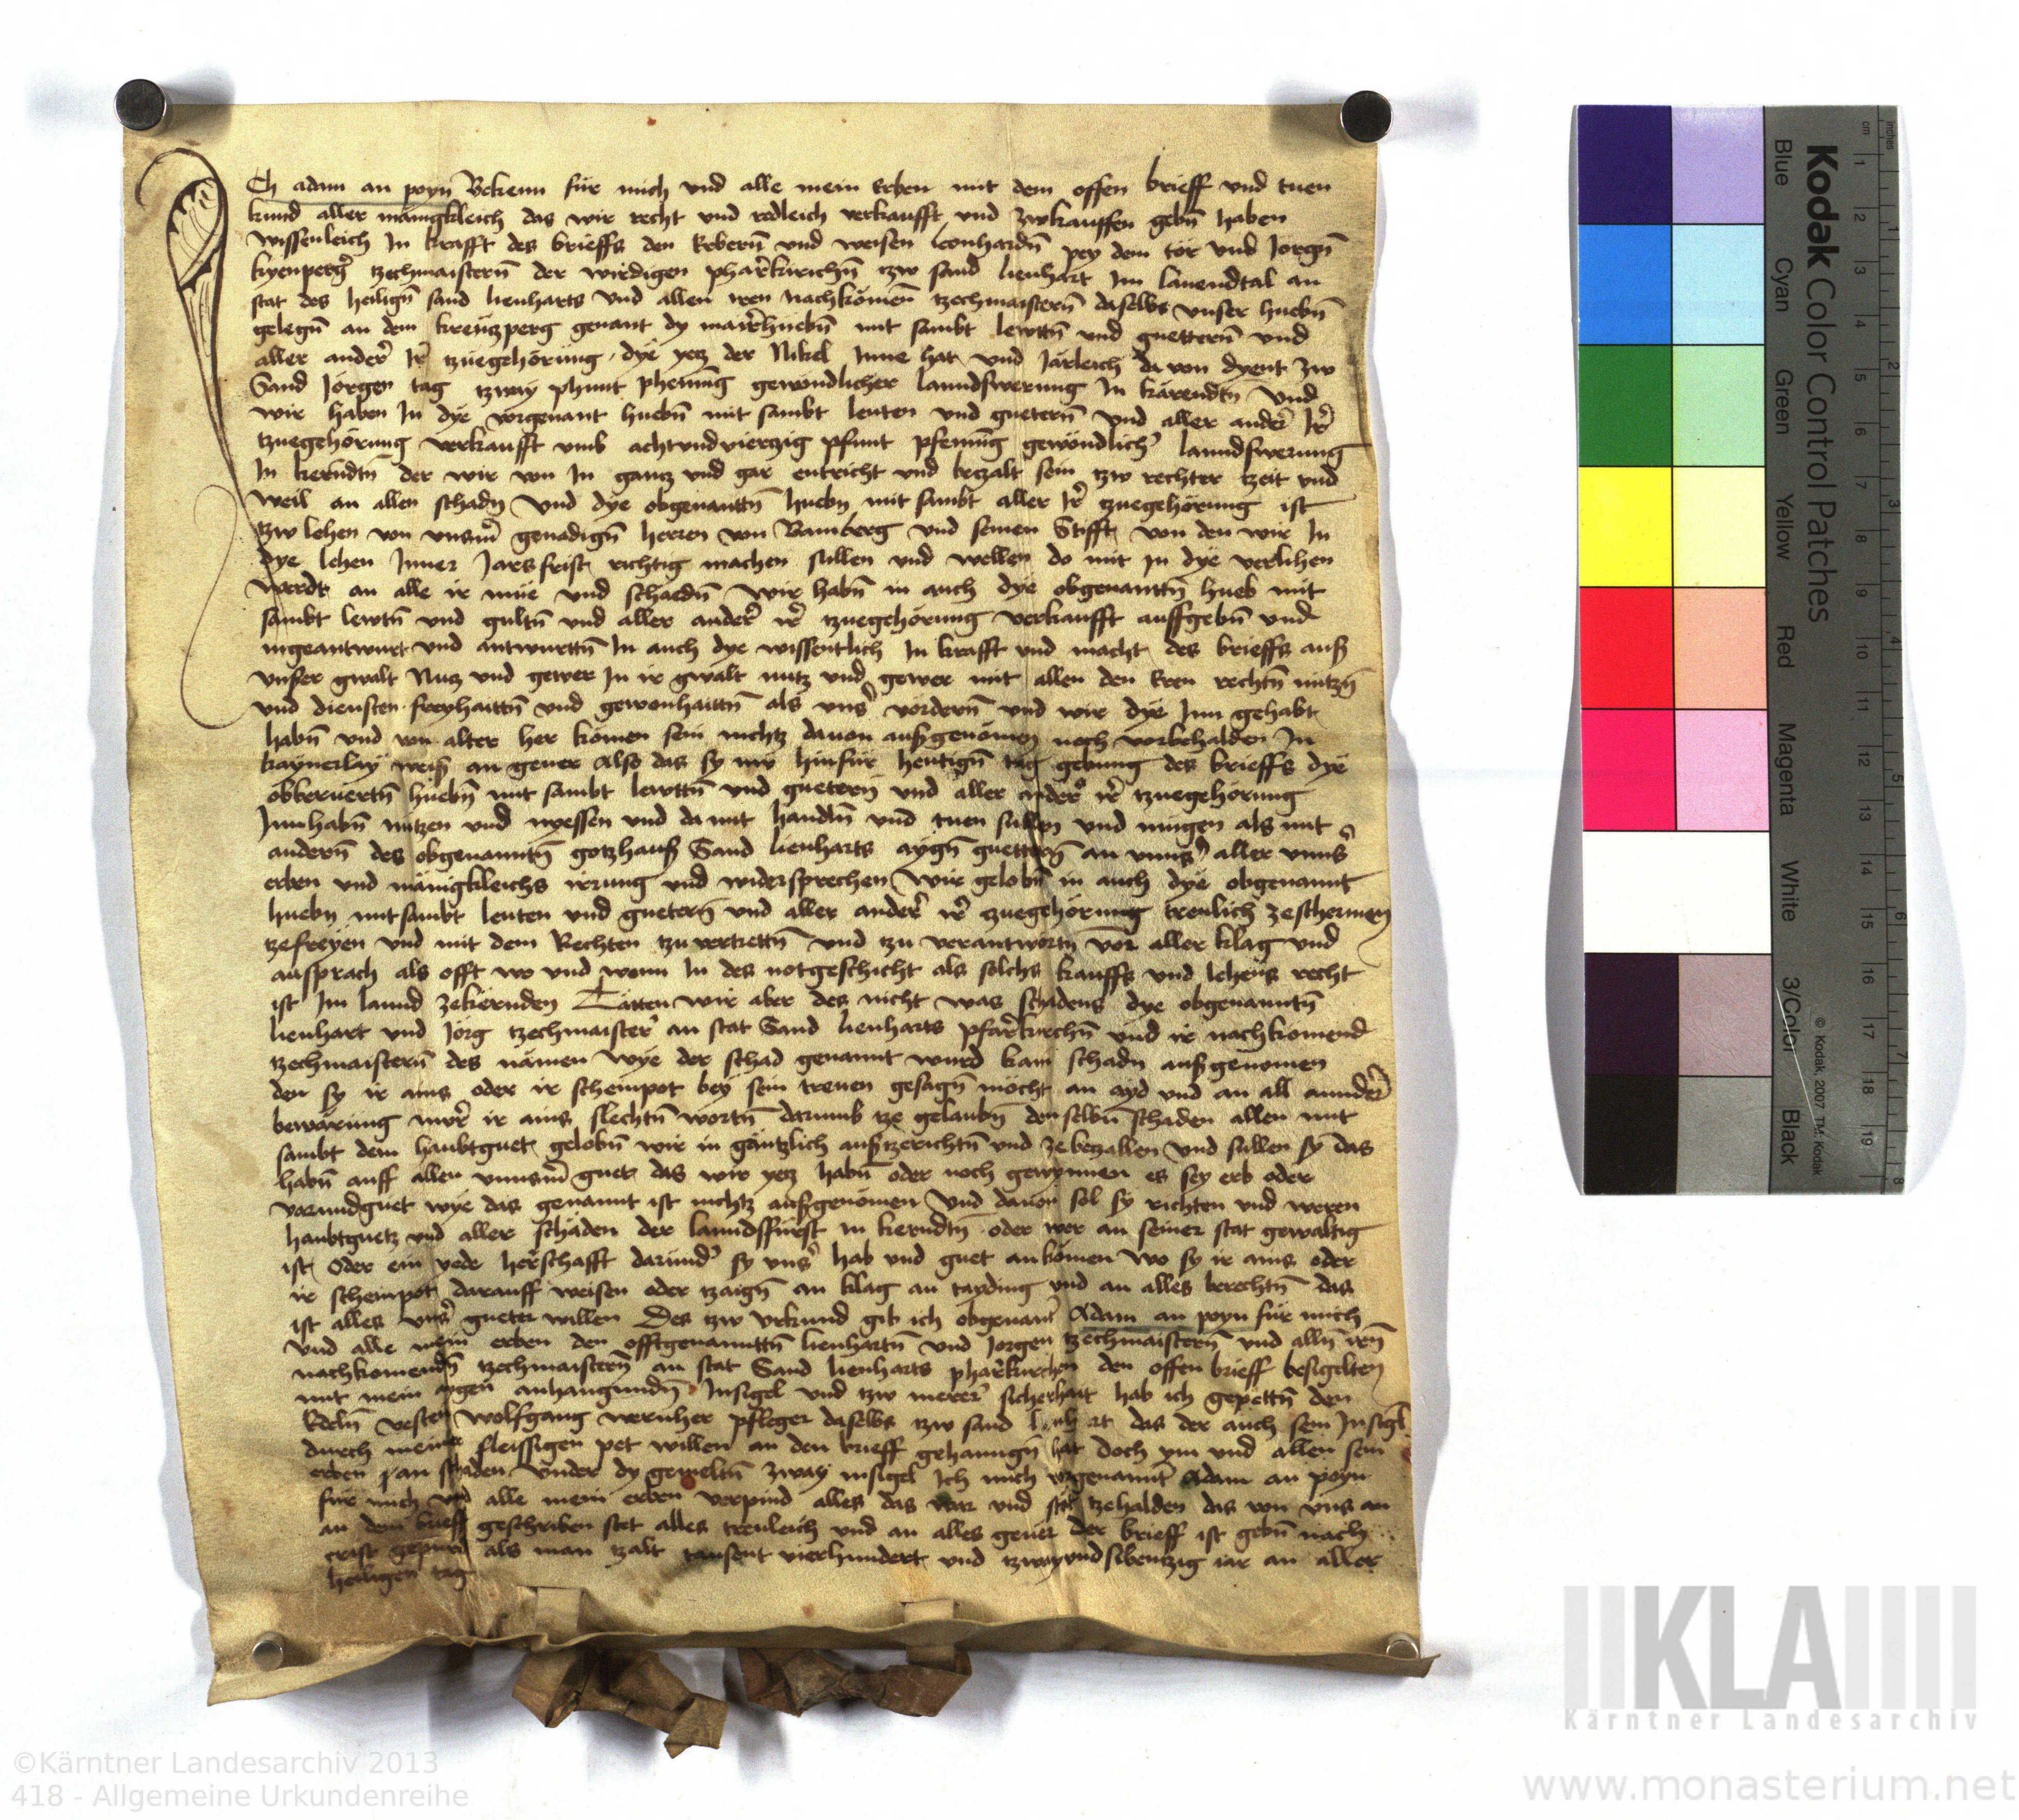 Ich adam an poyn Bekenn für mich vnd alle mein Erben mit dem offen brieff vnd tuen
kund aller mänigkleich das wir recht vnd redleich verkaufft vnd zwkauffen gebn̄ haben
wissenleich In krafft des brieffs den Erbern̄ vnd weisen Leonhardn̄ pey dem tör vnd Jörgn̄
kyenperg̉ tzechmaistern̄ der wirdigen phar̉kirichn̄ tzw sand lienhart Im lauendtal an
stat des heilign̄ sand lienharts vnd allen iren Nachkömen̄ tzechmaistern̄ daselbs vnser huebn̄
gelegn̄ an dem kreützperg genant dy mair̉huebn̄ mit sambt lewttn̄ vnd guettern̄ vnd
aller ander̉ Ir̉ tzuegehörung dye yetz der Nikel Inne hat vnd Järleich da von dyent zw
Sand Jörgen tag tzway phunt phenīng gewöndlicher lanndswerung In kärendtn̄ Vnd
wir haben In dye vorgenant huebn̄ mit sambt leuten vnd guetern̄ vnd aller ander̉ Ir̉
tzuegehörung verkaufft vmb achtvndviertzig pfunt pfenīng gewöndlich̉ lanndswerung
In kerndtn̄ der wir von In gantz vnd gar entricht vnd betzalt sein tzw rechter tzeit vnd
weil an allen schadn̄ Vnd dye obgenanttn̄ huebn̄ mit sambt aller Ir̉ zuegehörung ist
tzw lehen von vnsm̄ genadign̄ herren von Bamberg vnd seinen Stifft von den wir In
dye lehen Inner Jarsfrist richtig machen sullen vnd wellen do mit In dye verlihen
werdt an alle ir müe vnd schaedn̄ Wir habn̄ in auch dye obgenanttn̄ hueb mit
sambt lewtn̄ vnd gultn̄ vnd aller ander̉ ir̉ tzuegehörung verkaufft auffgebn̄ vnd
ingeantwurt vnd antwurttn̄ In auch dye wissentlich In krafft vnd macht des brieffs auß
vnser gwalt Nutz vnd gewer In ir gwalt nutz vnd gewer mit allen den Eren rechtn̄ nützn̄
vnd diensten freyhaittn̄ vnd gewonhaittn̄ als vns̉ vördern̄ vnd wir dye Inn gehabt
habn̄ vnd von alter her kömen sein nichtz dauon außgenömen noch vorbehalden In
kaynerlay weiß an geuer Also das sy nw hinfür hentign̄ tag gebung des brieffs dye
obberuertn̄ huebn̄ mit sambt lewttn̄ vnd guetern̄ vnd aller ander̉ ir̉ tzuegehörung
Innhabn̄ nützen vnd nyessen vnd da mit handln̄ vnd tuen sullen vnd mügen als mit
andern̄ des obgenanntn̄ gotzhauß Sand lienharts aygn̄ guettern̄ an vnns̉ aller vnns̉
erben vnd mänigkleichs irrung vnd widersprechen Wir gelobn̄ in auch dye obgenannt
huebn̄ mitsambt leuten vnd guetern̄ vnd aller ander̉ ir̉ zuegehörung treulich zeschermen
tzefreyen vnd mit dem Rechten tzu vertrettn̄ vnd tzu verantwortn̄ vor aller klag vnd
ansprach als offt wo vnd wenn In des notgeschicht als solchs kauffs vnd lehens recht
ist Im lannd zekernden Tätten wir aber des nicht was schadens dye obgenanntn̄
lienhart vnd Jörg tzechmaister̉ an stat Sand lienharts pfar̉kirchn̄ vnd ir nachkomend
tzechmaistern̄ des nämen wye der schad genannt wurd kain schadn̄ außgenomen
den sy ir ains oder ir scheinpot bey sein treuen gesagn̄ möcht an ayd vnd an all annder̉
bewärung nwr̉ ir ains slechtn̄ wortn̄ darumb tze gelaubn̄ den selbn̄ schaden allen mit
sambt dem haubtguet gelobn̄ wir in gäntzlich außzerichtn̄ vnd zebetzallen Vnd sullen sy das
habn̄ auff allen vnnsm̄ guet das wir yetz habn̄ oder noch gewynnen es sey erb oder
varundguet wye das genannt ist nichtz außgenömen Vnd dauon sol sy richten vnd weren
haubtguetz vnd aller schäden der lanndsfürst in kerndtn̄ oder wer an seiner stat gewaltig
ist oder ein yede herschafft darund̉ sy vns̉ hab vnd guet ankömen wo sy ir ains oder
ir scheinpot darauff weisen oder tzaign̄ an klag an tayding vnd an alles berechtn̄ das
ist alles vns̉ gueter willen Des tzw vrkund gib ich obgenant̉ Adam an poyn für mich
vnd alle mein erben den offtgenannttn̄ lienhartn̄ vnd Jorgen tzechmaistern̄ vnd alln̄ irn̄
nachkomendn̄ tzechmaistern̄ an stat Sand lienharts pharkirchen den offen brieff besigelten
mit mein aygen anhangundn̄ Insigel vnd tzw merer̉ sicherhait hab ich gepettn̄ den
Edeln̄ vesten wolfgang pfleger daselbs tzw sand lienhart das der auch sein Insigl
durch meiner fleissigen pet willen an den brieff gehanngn̄ hat doch ym vnd allen sein
erben an schaden vnder dy gemeltn̄ zway insigel Ich mich obgenannt̉ Adam an poyn
für mich vnd alle mein erben verpind alles das war vnd stät tzehalden das von vns an
an dem brieff geschriben stet alles treuleich vnd an alles geuer der brieff ist gebn̄ nach
crist gepurd als man tzalt tausent vierhundert vnd tzwayvndsibentzig iar an aller
heiligen tag
Kodak Color Control Patches
Blue Cyan Green Yellow Red Magenta White 3/Color Black
© Kodak, 2007 TM: Kodak
cm 1 2 3 4 5 6 7 8 9 10 11 12 13 14 15 16 17 18 19
inches 1 2 3 4 5 6 7 8
KLA
Kärntner Landesarchiv
©Kärntner Landesarchiv 2013
418 - Allgemeine Urkundenreihe
www.monasterium.net